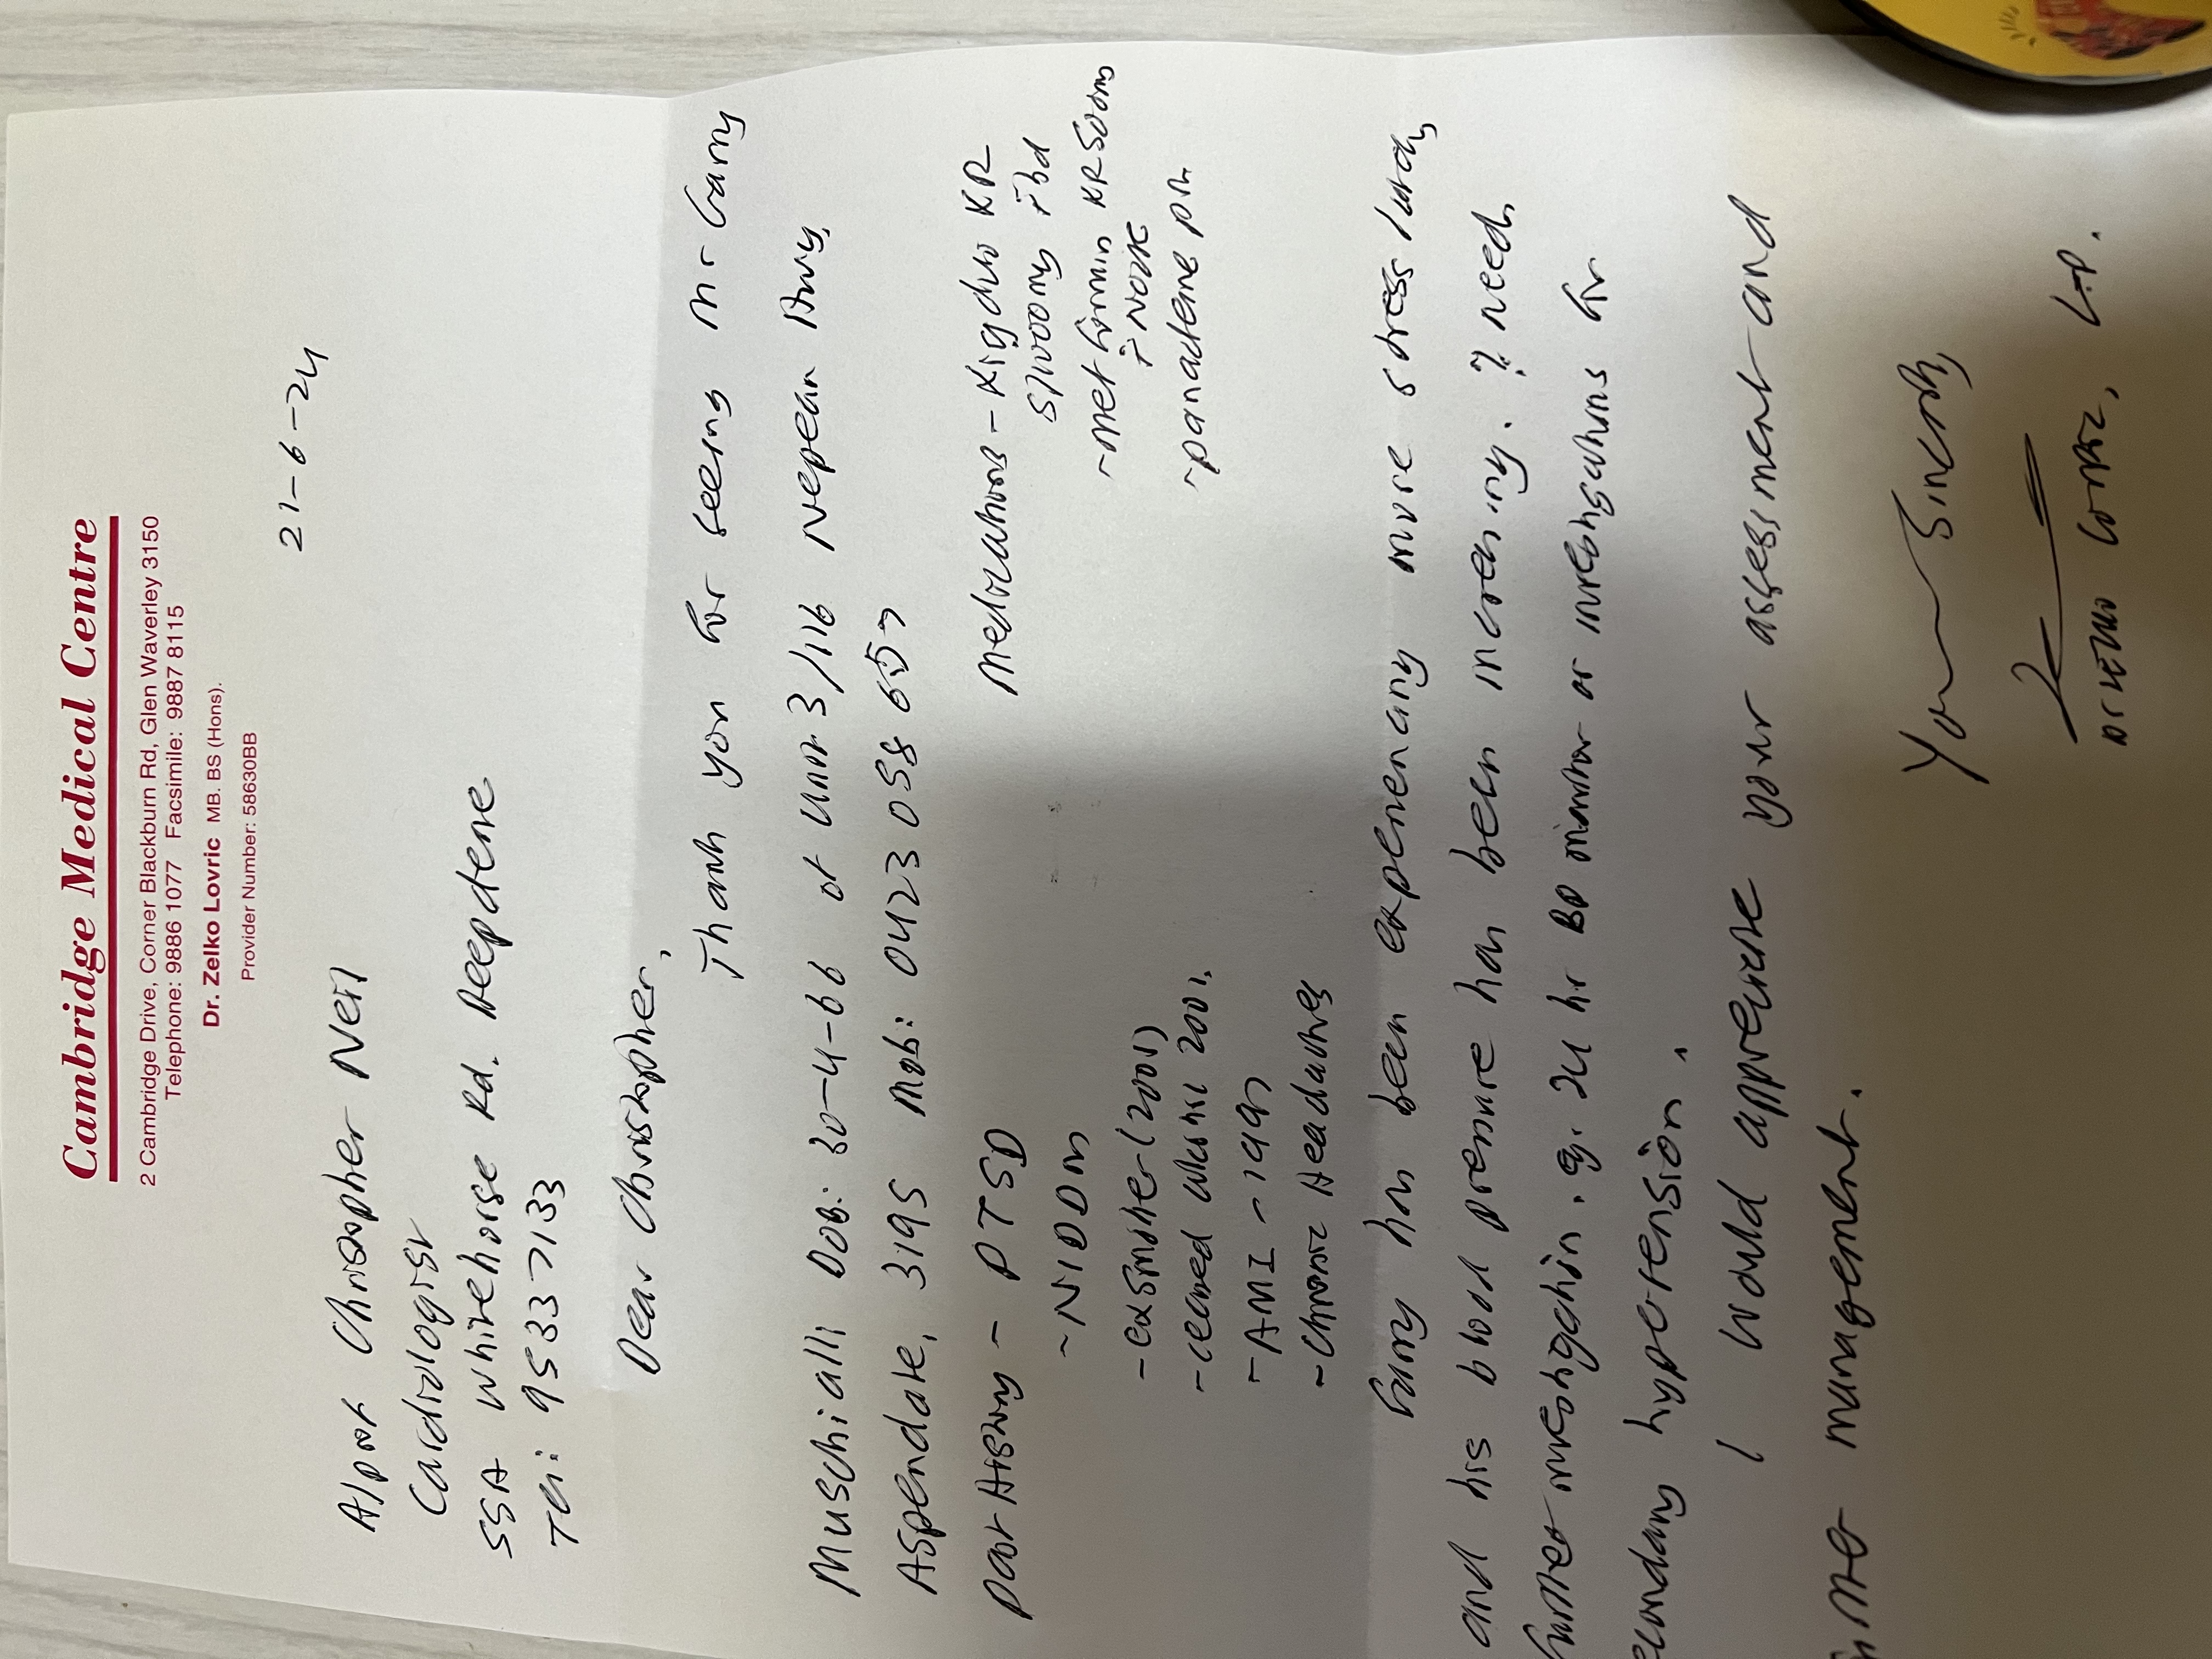 Cambridge Medical Centre
2 Cambridge Drive, Corner Blackburn Rd, Glen Waverley 3150
Telephone: 9886 1077 Facsimile: 9887 8115
Dr. Zelko Lovric MB. BS (Hons).
Provider Number: 58630BB
21-6-24
A/Prof Christopher Neil
Cardiologist
55A Whitehorse Rd. Deepdene
Tel: 9533 7133
Dear Christopher,
Thank you for seeing Mr Garry
Muschialli DOB: 30-4-66 of Unit 3/116 Nepean Hwy,
Aspendale, 3195 Mob: 0423 058 657
Past History - PTSD
- NIDDM
- exsmoker (2001)
- ceased 2001.
- AMI -
- Chronic Headaches
Medications - Xigduo XR
5/1000mg ibd
- metformin XR 500mg
i nocte
- panadeine prn
Garry has been experiencing more stress lately
and his blood pressure has been increasing. ? need
further investigation. eg. 24 hr BP monitor or investigations for
secondary hypertension.
I would appreciate your assessment and
management.
Yours Sincerely,
Dr Zelko Lovric, G.P.